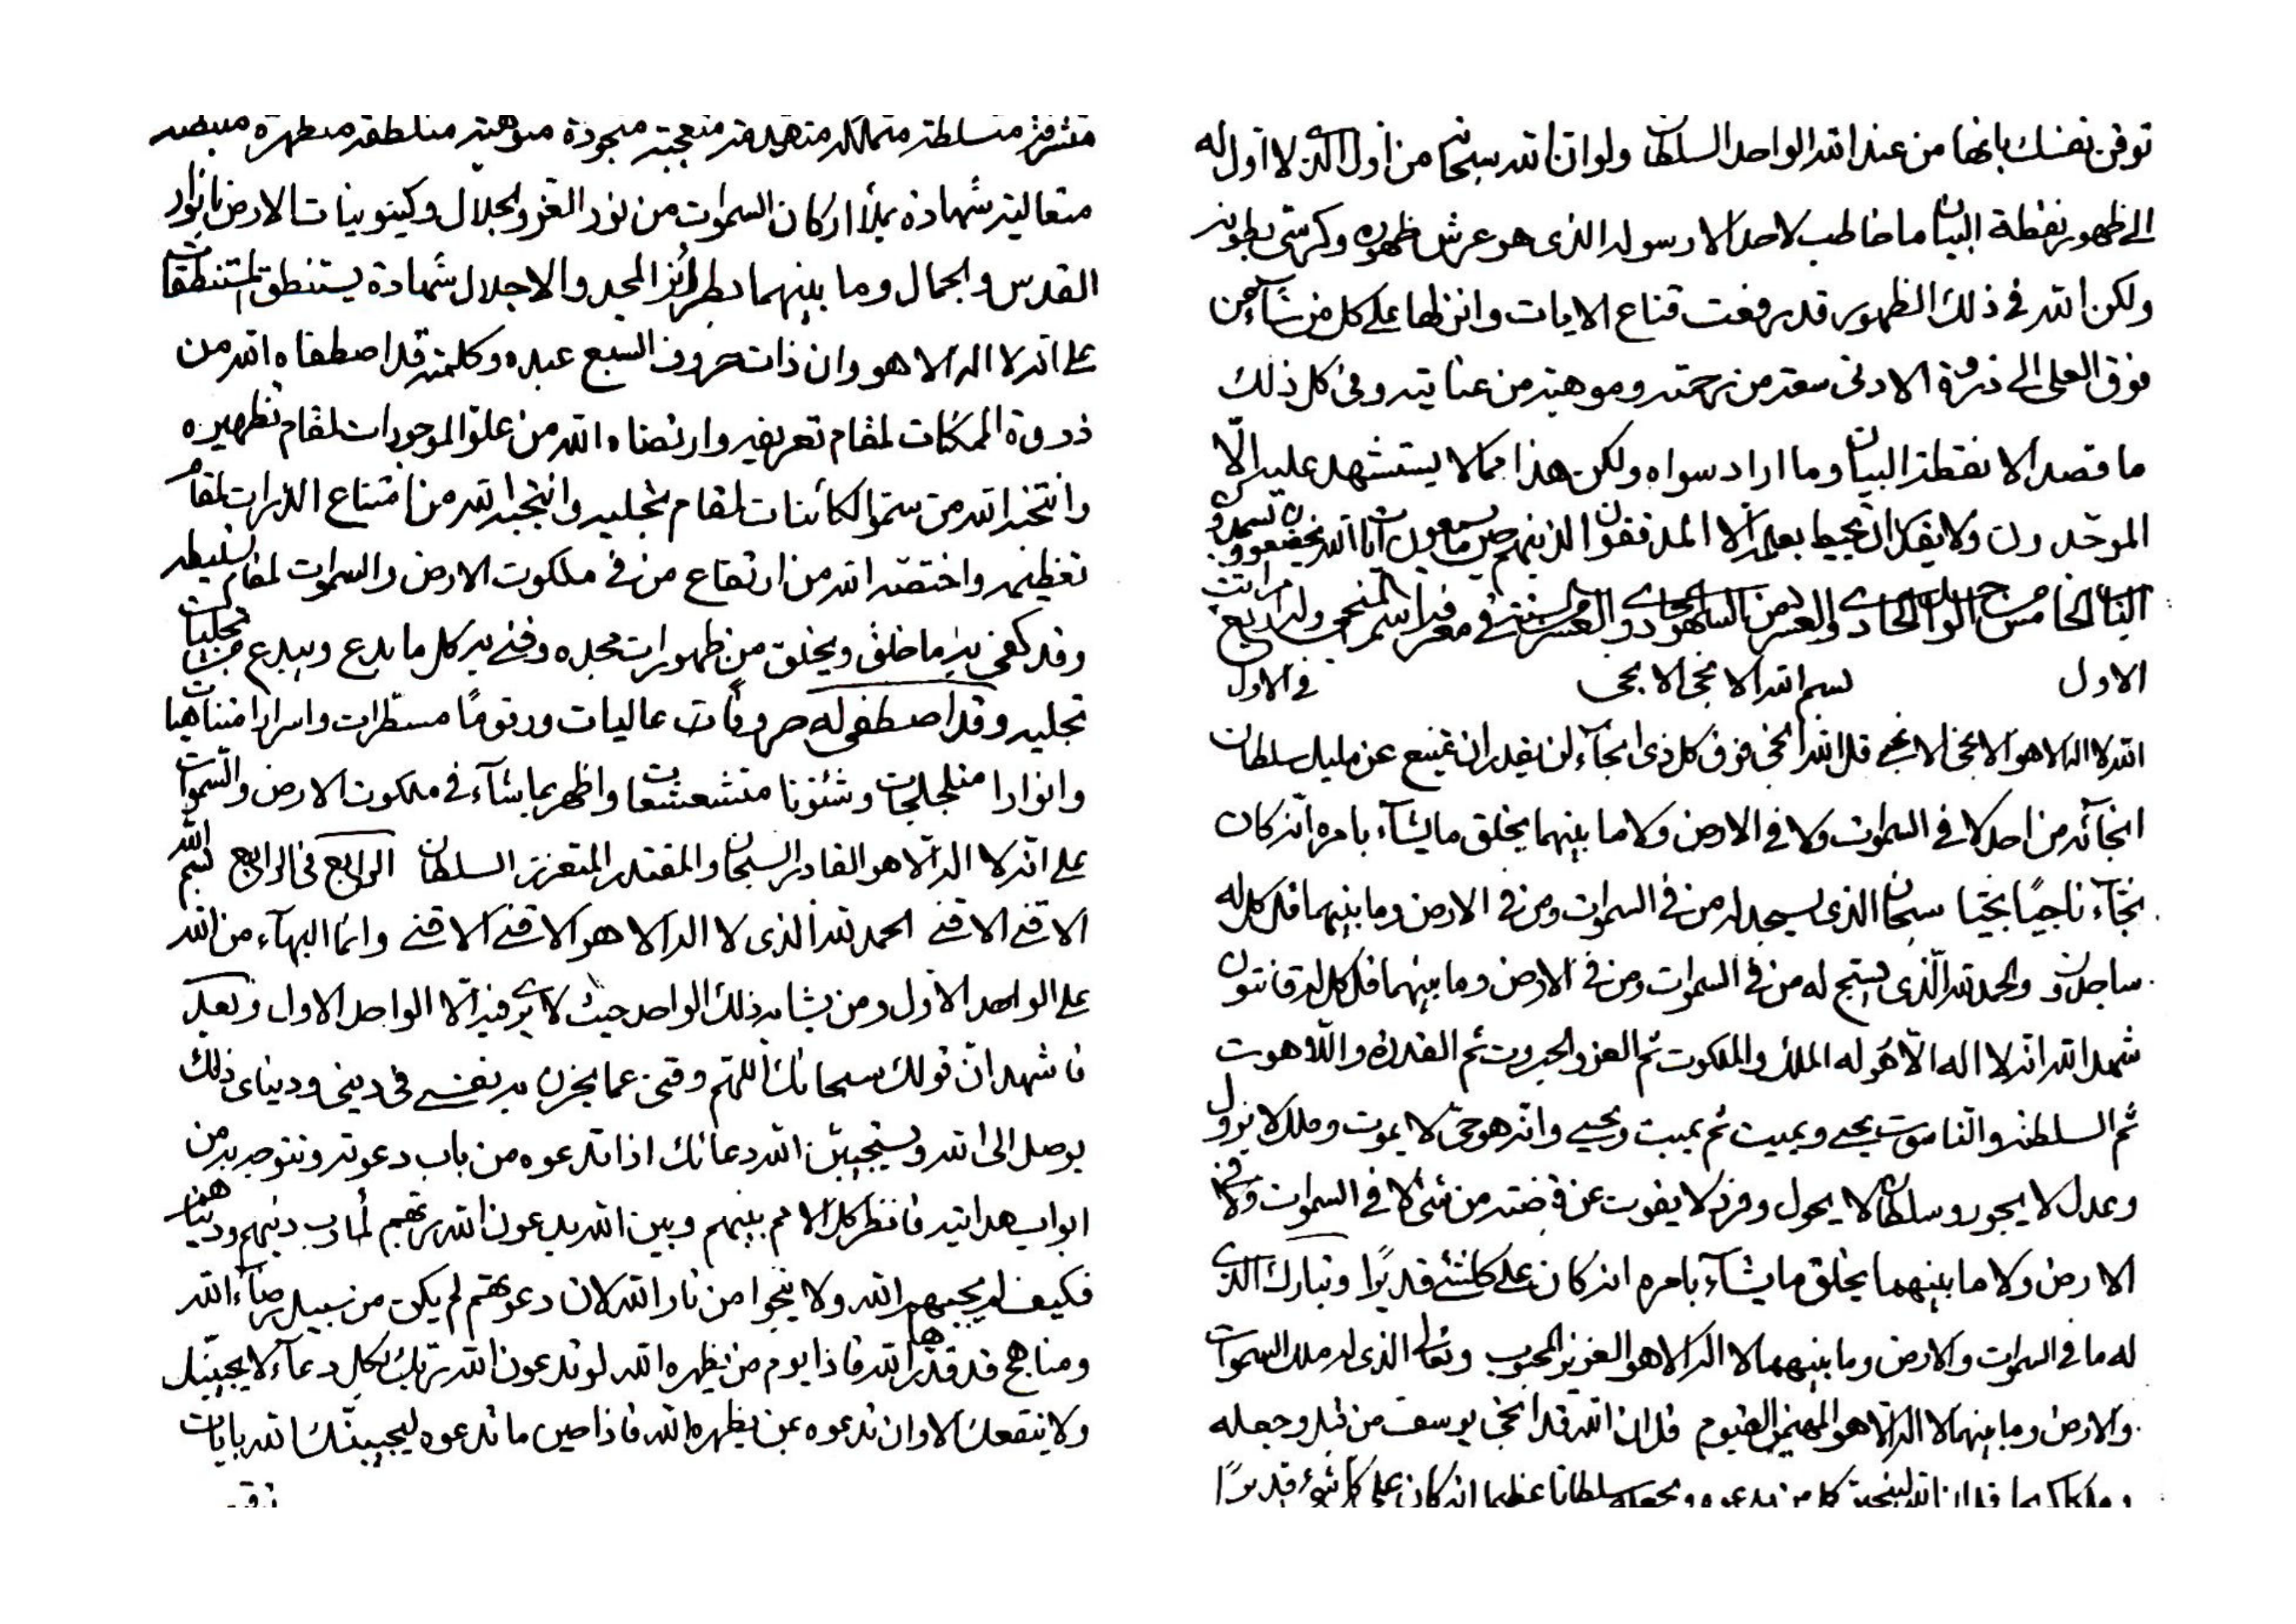 توقن نفسك بانها من عند الله الواحد السلطان ولو ان الله سبحانه من اول الذي لا اول له
الى ظهور نقطة البيان ما خاطب لاحد الا رسوله الذى هو عرش ظهوره وكرسى بطونه
ولكن الله في ذلك الظهور قد رفعت قناع الايات وانزلها على كل من شآء من
فوق العلى الى ذروة الادنى سعة من رحمته وموهبة من عنايته وفى كل ذلك
ما قصد الا نقطة البيان وما اراد سواه ولكن هذا مما لا يستشهد عليه الّا
الموحّدون ولا يقدر ان يحيط بعلمه الا المدققون الذينهم حين ما يسمعون ايات الله يخضعون
الباب الخامس من الواحد الحادى والعشر فى معرفة اسم المنجى وله اربع مراتب
الاول بسم الله الانجى الانجى فى الاول
الله لا اله الا هو الانجى الانجى قل الله انجى فوق كل ذى انجآء لن يقدر ان يمتنع عن مليك سلطان
انجآئه من احد لا فى السموات ولا فى الارض ولا ما بينهما يخلق ما يشآء بامره انه كان
نجّآء ناجيًا نجيّا سبحان الذى يسجد له من فى السموات ومن فى الارض وما بينهما قل كل له
ساجدون والحمد لله الّذى يسبح له من فى السموات ومن فى الارض وما بينهما قل كل له قانتون
شهد الله انه لا اله الّا هو له الملك والملكوت ثم العز والجبروت ثم القدرة واللاهوت
ثم السلطنة والناسوت يحيى ويميت ثم يميت ويحيى وانه هو حىّ لا يموت وملك لا يزول
وعدل لا يجور وسلطان لا يحول وفرد لا يفوت عن قبضته من شئ لا فى السموات ولا فى
الارض ولا ما بينهما يخلق ما يشآء بامره انه كان على كلشئ قديرًا وتبارك الذى
له ما فى السموات والارض وما بينهما لا اله الا هو العزيز المحبوب وتعالى الذى له ملك السموات
والارض وما بينهما لا اله الّا هو المهيمن القيوم قل ان الله قد انجى يوسف من قبل وجعله
قل ان الله لينجين كل من يدعوه ويجعله سلطانا عظيما انه كان على كل شئ قديرًا
متعالية شهادة يملأ اركان السموات من نور العز والجلال وكينونيات الارض بانوار
القدس والجمال وما بينهما بطرائز المجد والاجلال شهادة يستنطق المتنطقات
على انه لا اله الا هو وان ذات حروف السبع عبده وكلمته قد اصطفاه الله من
ذروة الممكنات لمقام تعريفه وارتضاه الله من علوّ الموجودات لمقام تظهيره
وانتخبه الله من سموّ الكائنات لمقام تجليه وانتجبه الله من امتناع الذرات لمقام
تعظيمه واختصّه الله من ارتفاع من فى ملكوت الارض والسموات لمقام تسليطه
وقد كفى به ما خلق ويخلق من ظهورات مجده وغنى به كل ما بدع ويبدع من تجليات
تجليه وقد اصطفى له حروفات عاليات ورقومًا مسطّرات واسرارا متناهيات
وانوارا متلجلجات وشئونا متشعشعات واظهر بما شآء فى ملكوت الارض والسّموات
على انه لا اله الّا هو القادر السبحان والمقتدر المتعزز السلطان الرابع فى الرابع بسم الله
الاقنى الاقنى الحمد لله الذى لا اله الا هو الاقنى الاقنى وانما البهآء من الله
على الواحد الاول ومن يشابه ذلك الواحد حيث لا يرى فيه الّا الواحد الاول وبعد
فاشهد ان قولك سبحانك اللهم وقنى عما يحزن به نفسى فى دينى ودنياى ذلك
يوصل الى الله ويستجيبنّ الله دعائك اذا تدعوه من باب دعوته وتتوجه به من
ابواب هدايته فانظر كل الامم بينهم وبين الله يدعون الله ربّهم لمآرب دينهم ودنياهم
فكيف لم يجبهم الله ولا ينجوا من نار الله لان دعوتهم لم يكن من سبيل رضآء الله
ومناهج قد قدّرها الله فاذا يوم من يظهره الله لو تدعون الله ربّك بكل دعآء لا يجيبنّك
ولا ينفعك الا وان تدعوه بمن يظهره الله فاذا حين ما تدعوه ليجيبنّك الله بايات